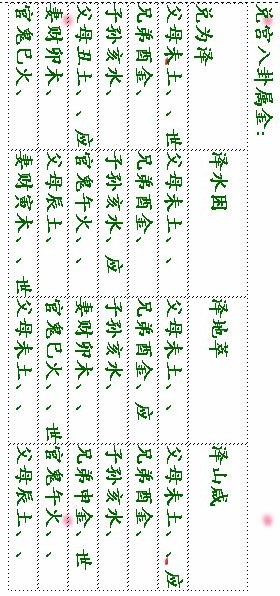 兑宫八卦属金:
兑为泽 泽水困 泽地萃 泽山咸
父母未土、、世 父母未土、、 父母未土、、 父母未土、、应
兄弟酉金、 兄弟酉金、 兄弟酉金、应 兄弟酉金、
子孙亥水、 子孙亥水、应 子孙亥水、 子孙亥水、
父母丑土、、应 官鬼午火、、 妻财卯木、、 兄弟申金、世
妻财卯木、 父母辰土、 官鬼巳火、、世 官鬼午火、、
官鬼巳火、 妻财寅木、、世 父母未土、、 父母辰土、、